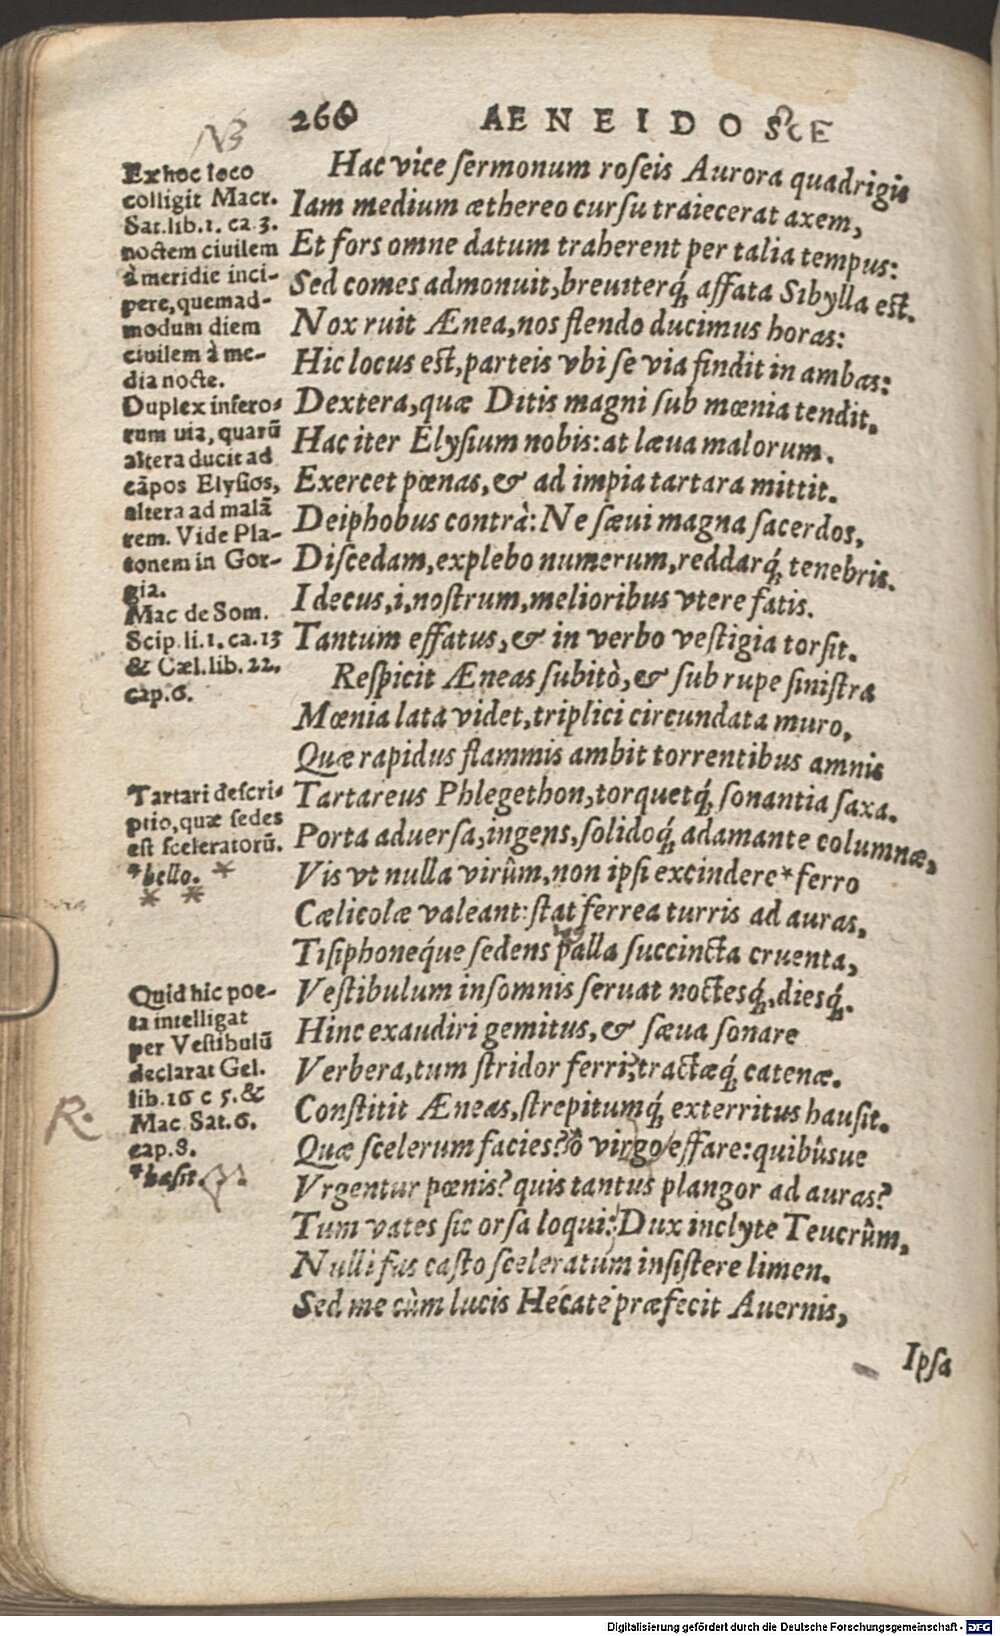 260 AENEIDOS
NB
Ex hoc loco
colligit Macr.
Sat. lib. 1. ca 3.
noctem ciuilem
à meridie inci-
pere, quemad-
modum diem
ciuilem à me-
dia nocte.
Duplex infero-
rum uia, quarũ
altera ducit ad
cãpos Elysios,
altera ad malã
rem. Vide Pla-
tonem in Gor-
gia.
Mac de Som.
Scip. li. 1. ca. 13
& Cæl. lib. 22.
cap. 6.
Tartari descri-
ptio, quæ sedes
est sceleratorũ.
* bello. *
* *
Quid hic poe-
ta intelligat
per Vestibulũ
declarat Gel.
lib. 16 c 5. &
Mac. Sat. 6.
cap. 8.
* hæsit.
R.
Hac vice sermonum roseis Aurora quadrigis
Iam medium æthereo cursu traiecerat axem,
Et fors omne datum traherent per talia tempus:
Sed comes admonuit, breuiterq́; affata Sibylla est.
Nox ruit Ænea, nos flendo ducimus horas:
Hic locus est, parteis vbi se via findit in ambas:
Dextera, quæ Ditis magni sub mœnia tendit.
Hac iter Elysium nobis: at læua malorum.
Exercet pœnas, & ad impia tartara mittit.
Deiphobus contrà: Ne sæui magna sacerdos,
Discedam, explebo numerum, reddarq́; tenebris.
I decus, i, nostrum, melioribus vtere fatis.
Tantum effatus, & in verbo vestigia torsit.
Respicit Æneas subitò, & sub rupe sinistra
Mœnia lata videt, triplici circundata muro,
Quæ rapidus flammis ambit torrentibus amnis
Tartareus Phlegethon, torquetq́; sonantia saxa.
Porta aduersa, ingens, solidoq́; adamante columnæ,
Vis vt nulla virûm, non ipsi excindere * ferro
Cælicolæ valeant: stat ferrea turris ad auras,
Tisiphoneq́ue sedens palla succincta cruenta,
Vestibulum insomnis seruat noctesq́;, diesq́;.
Hinc exaudiri gemitus, & sæua sonare
Verbera, tum stridor ferri, tractæq́; catenæ.
Constitit Æneas, strepitumq́; exterritus hausit.
Quæ scelerum facies? ô virgo effare: quibûsue
Vrgentur pœnis? quis tantus plangor ad auras?
Tum vates sic orsa loqui: Dux inclyte Teucrûm,
Nulli fas casto sceleratum insistere limen.
Sed me cùm lucis Hecate præfecit Auernis,
Ipsa
Digitalisierung gefördert durch die Deutsche Forschungsgemeinschaft - DFG